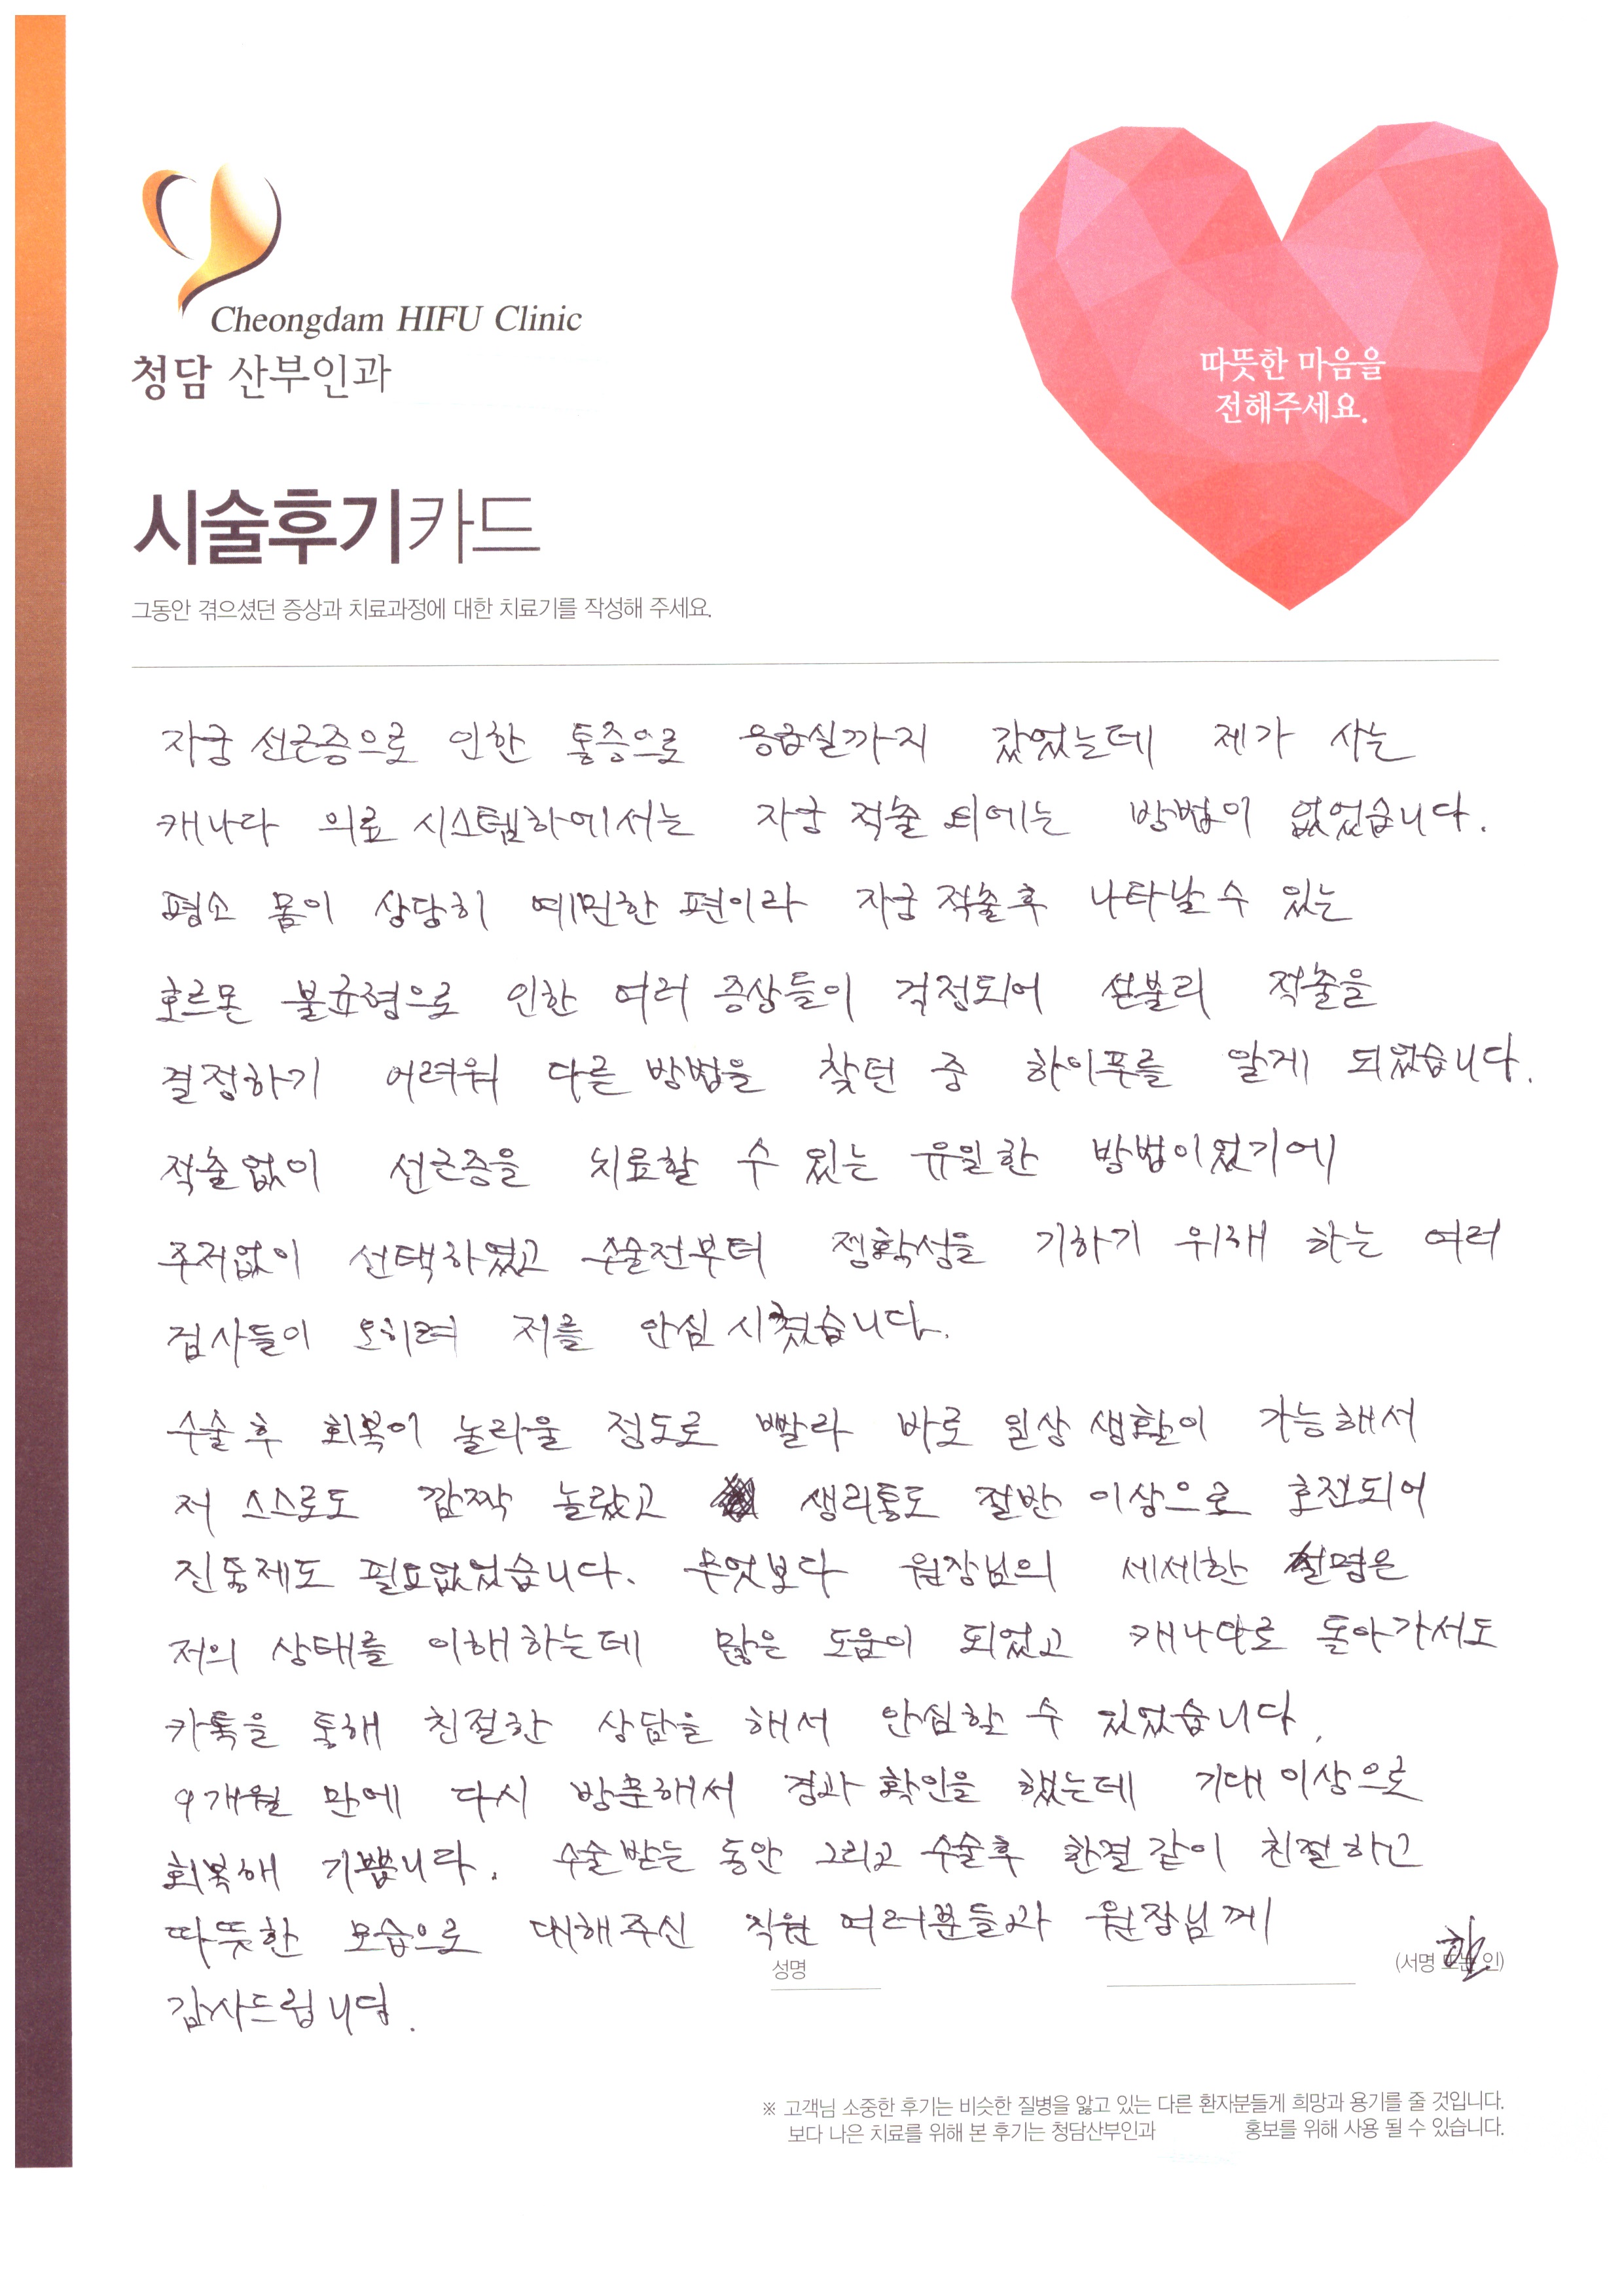 Cheongdam HIFU Clinic
청담 산부인과
따뜻한 마음을
전해주세요.
시술후기카드
그동안 겪으셨던 증상과 치료과정에 대한 치료기를 작성해 주세요.
자궁 선근증으로 인한 통증으로 응급실까지 갔었는데 제가 사는
캐나다 의료 시스템하에서는 자궁 적출 외에는 방법이 없었습니다.
평소 몸이 상당히 예민한 편이라 자궁 적출후 나타날 수 있는
호르몬 불균형으로 인한 여러 증상들이 걱정되어 선불리 적출을
결정하기 어려워 다른 방법을 찾던 중 하이푸를 알게 되었습니다.
적출없이 선근증을 치료할 수 있는 유일한 방법이었기에
주저없이 선택하였고 수술전부터 정확성을 기하기 위해 하는 여러
검사들이 오히려 저를 안심 시켰습니다.
수술 후 회복이 놀라울 정도로 빨라 바로 일상 생활이 가능해서
저 스스로도 깜짝 놀랐고 생리통도 절반 이상으로 호전되어
진통제도 필요없었습니다. 무엇보다 원장님의 세세한 설명은
저의 상태를 이해하는데 많은 도움이 되었고 캐나다로 돌아가서도
카톡을 통해 친절한 상담을 해서 안심할 수 있었습니다.
9개월 만에 다시 방문해서 경과 확인을 했는데 기대 이상으로
회복해 기쁩니다. 수술받는 동안 그리고 수술후 한결 같이 친절하고
따뜻한 모습으로 대해주신 직원 여러분들과 원장님께
성명 (서명 또는 인)
감사드립니다.
※ 고객님 소중한 후기는 비슷한 질병을 앓고 있는 다른 환자분들게 희망과 용기를 줄 것입니다.
보다 나은 치료를 위해 본 후기는 청담산부인과 홍보를 위해 사용 될 수 있습니다.